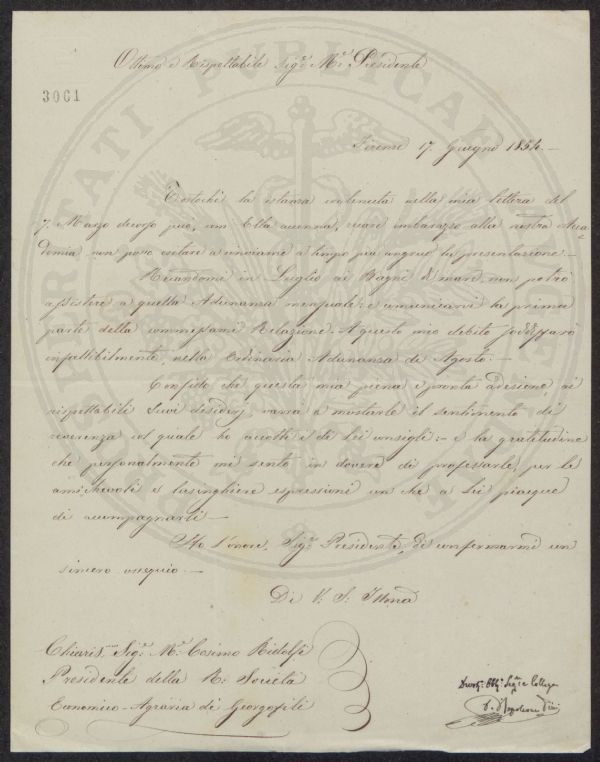 Ottimo e Rispettabile Sig.r M.se Presidente
3061
Firenze 17. Giugno 1854. —
Tostochè la istanza contenuta nella mia lettera del
7. Marzo decorso può, com' Ella accenna, recare imbarazzo alla nostra Acca=
demia, non posso esitare a rinviarne a tempo più congruo la presentazione. —
Recandomi in Luglio ai Bagni di mare, non potrò
assistere a quella Adunanza mensuale, e comunicarvi la prima
parte della commessami Relazione. A questo mio debito soddisfarò
infallibilmente, nella Ordinaria Adunanza di Agosto. —
Confido che questa mia piena e pronta adesione, ai
rispettabili Suoi desiderj, varrà a mostrarle il sentimento di
reverenza col quale ho accolti i di Lei consigli: — e la gratitudine
che personalmente mi sento in dovere di professarle, per le
amichevoli e lusinghiere espressioni con che a Lei piacque
di accompagnarli —
Ho l'onore, Sig.r Presidente, di confermarmi con
sincero ossequio —
Di V. S. Ill.ma
Chiaris.mo Sig.r M.se Cosimo Ridolfi
Presidente della R. Società
Economico-Agraria di Georgofili
Dev.mo Obb.mo Collega